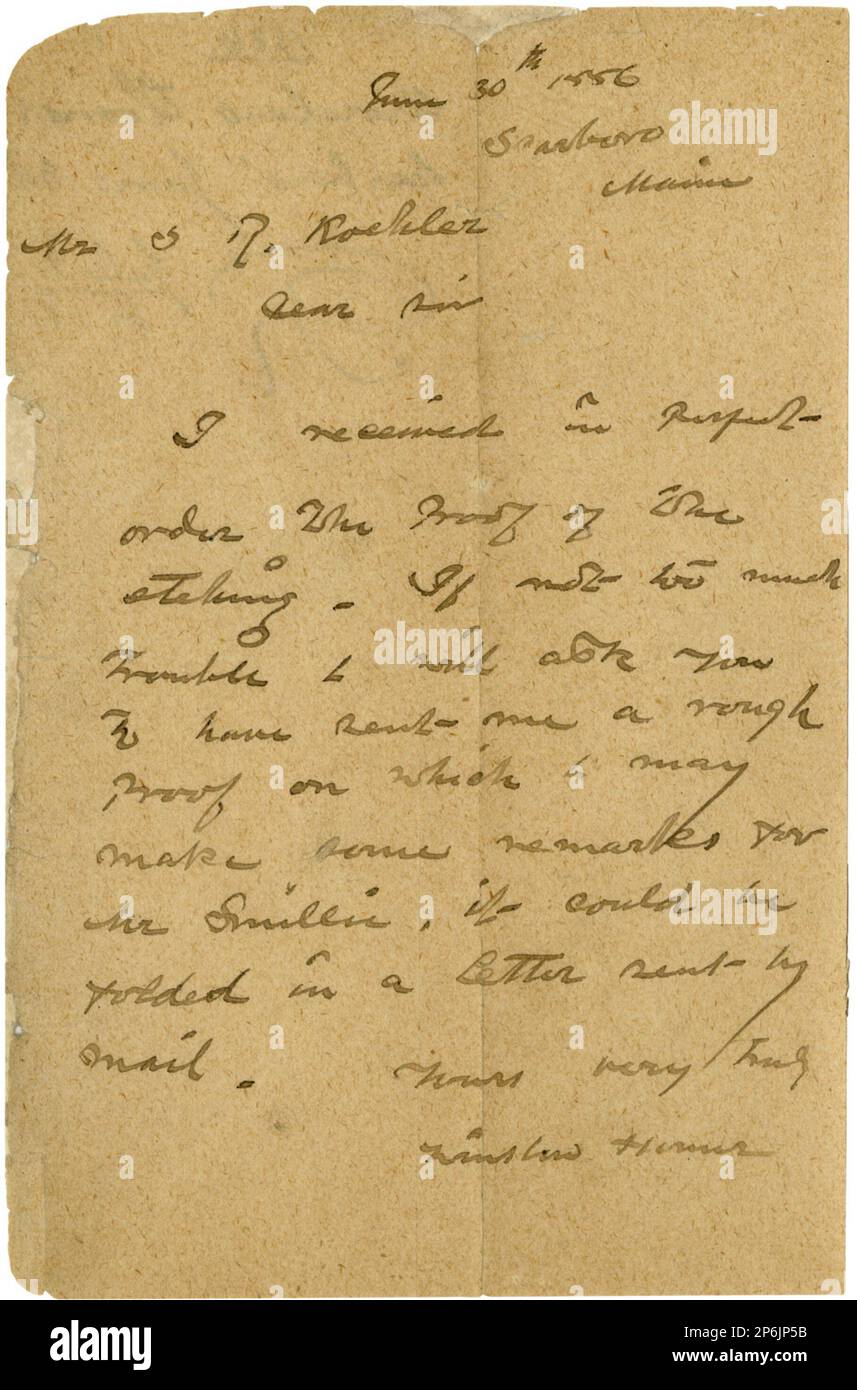 June 30th 1886
Scarboro
Maine
Mr S R. Koehler
Dear Sir
I received in perfect
order the proof of the
etching. If not too much
trouble I will ask you
to have sent me a rough
proof on which I may
make some remarks for
Mr Smillie, it could be
folded in a letter sent by
mail.
Yours very truly
Winslow Homer
alamy
Image ID: 2P6JP5B
www.alamy.com